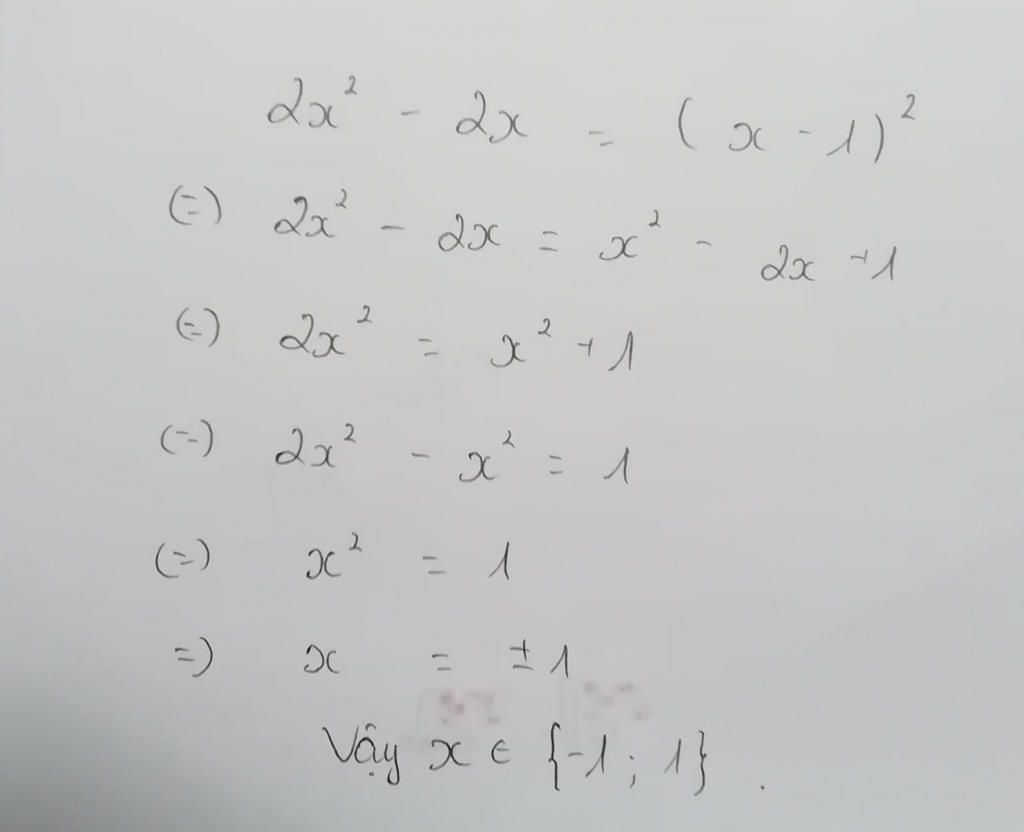 2x² - 2x = (x - 1)²
(=) 2x² - 2x = x² - 2x + 1
(=) 2x² = x² + 1
(=) 2x² - x² = 1
(=) x² = 1
=) x = ±1
Vậy x ∈ {-1; 1}.